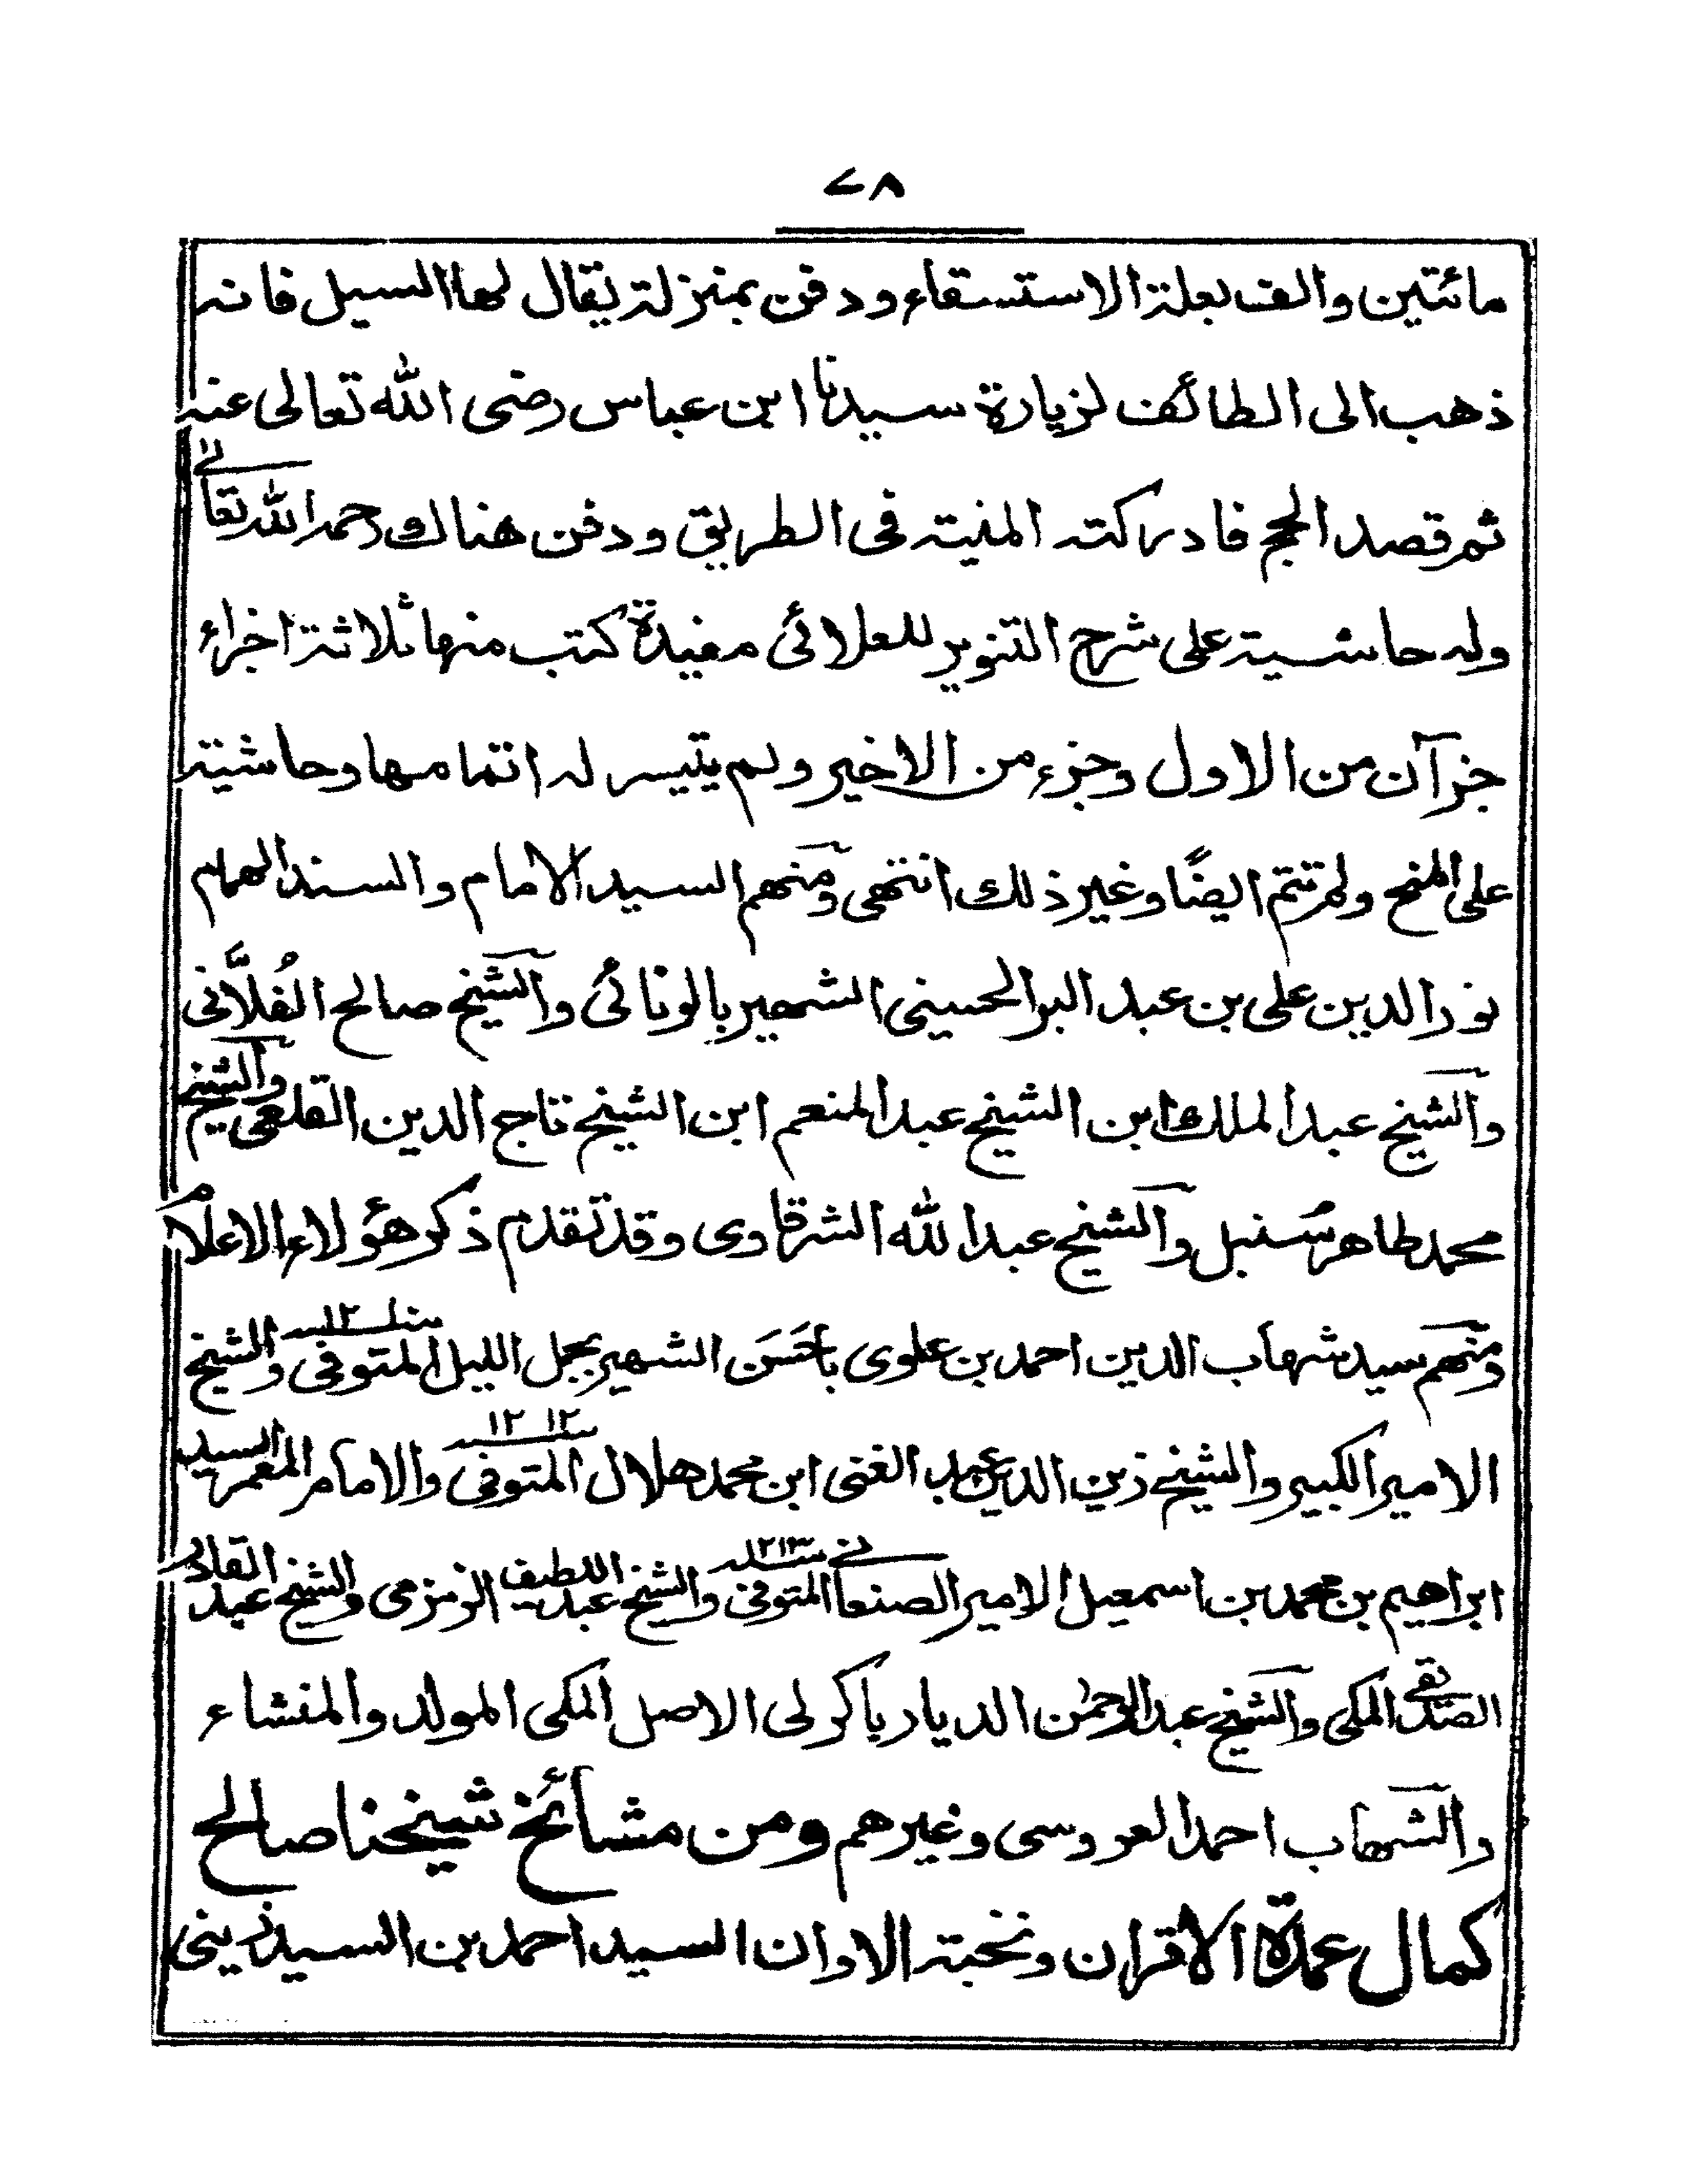 ٧٨
مائتين والف بعلة الاستسقاء ودفن بمنزلة يقال لها السيل فانه
ذهب الى الطائف لزيارة سيدنا ابن عباس رضى الله تعالى عنه
ثم قصد الحج فادركته المنية فى الطريق ودفن هناك رحمه الله تعالى
وله حاشية على شرح التنوير للعلائى مفيدة كتب منها ثلاثة اجزاء
جزآن من الاول وجزء من الاخير ولم يتيسر له اتمامها وحاشية
على المنح ولم تتم ايضًا وغير ذلك انتهى ومنهم السيد الامام والسند الهمام
نور الدين على بن عبد البر الحسينى الشهير بالونائى والشيخ صالح الفُلَّانى
والشيخ عبد الملك ابن الشيخ عبد المنعم ابن الشيخ تاج الدين القلعى والشيخ
محمد طاهر سُنبل والشيخ عبد الله الشرقاوى وقد تقدم ذكر هؤلاء الاعلام
ومنهم سيد شهاب الدين احمد بن علوى باحَسَن الشهير بجمل الليل المتوفى والشيخ
الامير الكبير والشيخ زين الدين عبد الغنى ابن محمد هلال المتوفى ١٢١٢ والامام المعمر السيد
ابراهيم بن محمد بن اسمعيل الامير الصنعانى المتوفى ١٢١٣ والشيخ عبد اللطيف الزمزمى والشيخ عبد القادر
الصديقى المكى والشيخ عبد الرحمن الديار باكرلى الاصل المكى المولد والمنشاء
والشهاب احمد العروسى وغيرهم ومن مشائخ شيخنا صالح
كمال عمدة الاقران ونخبة الاوان السيد احمد بن السيد زينى